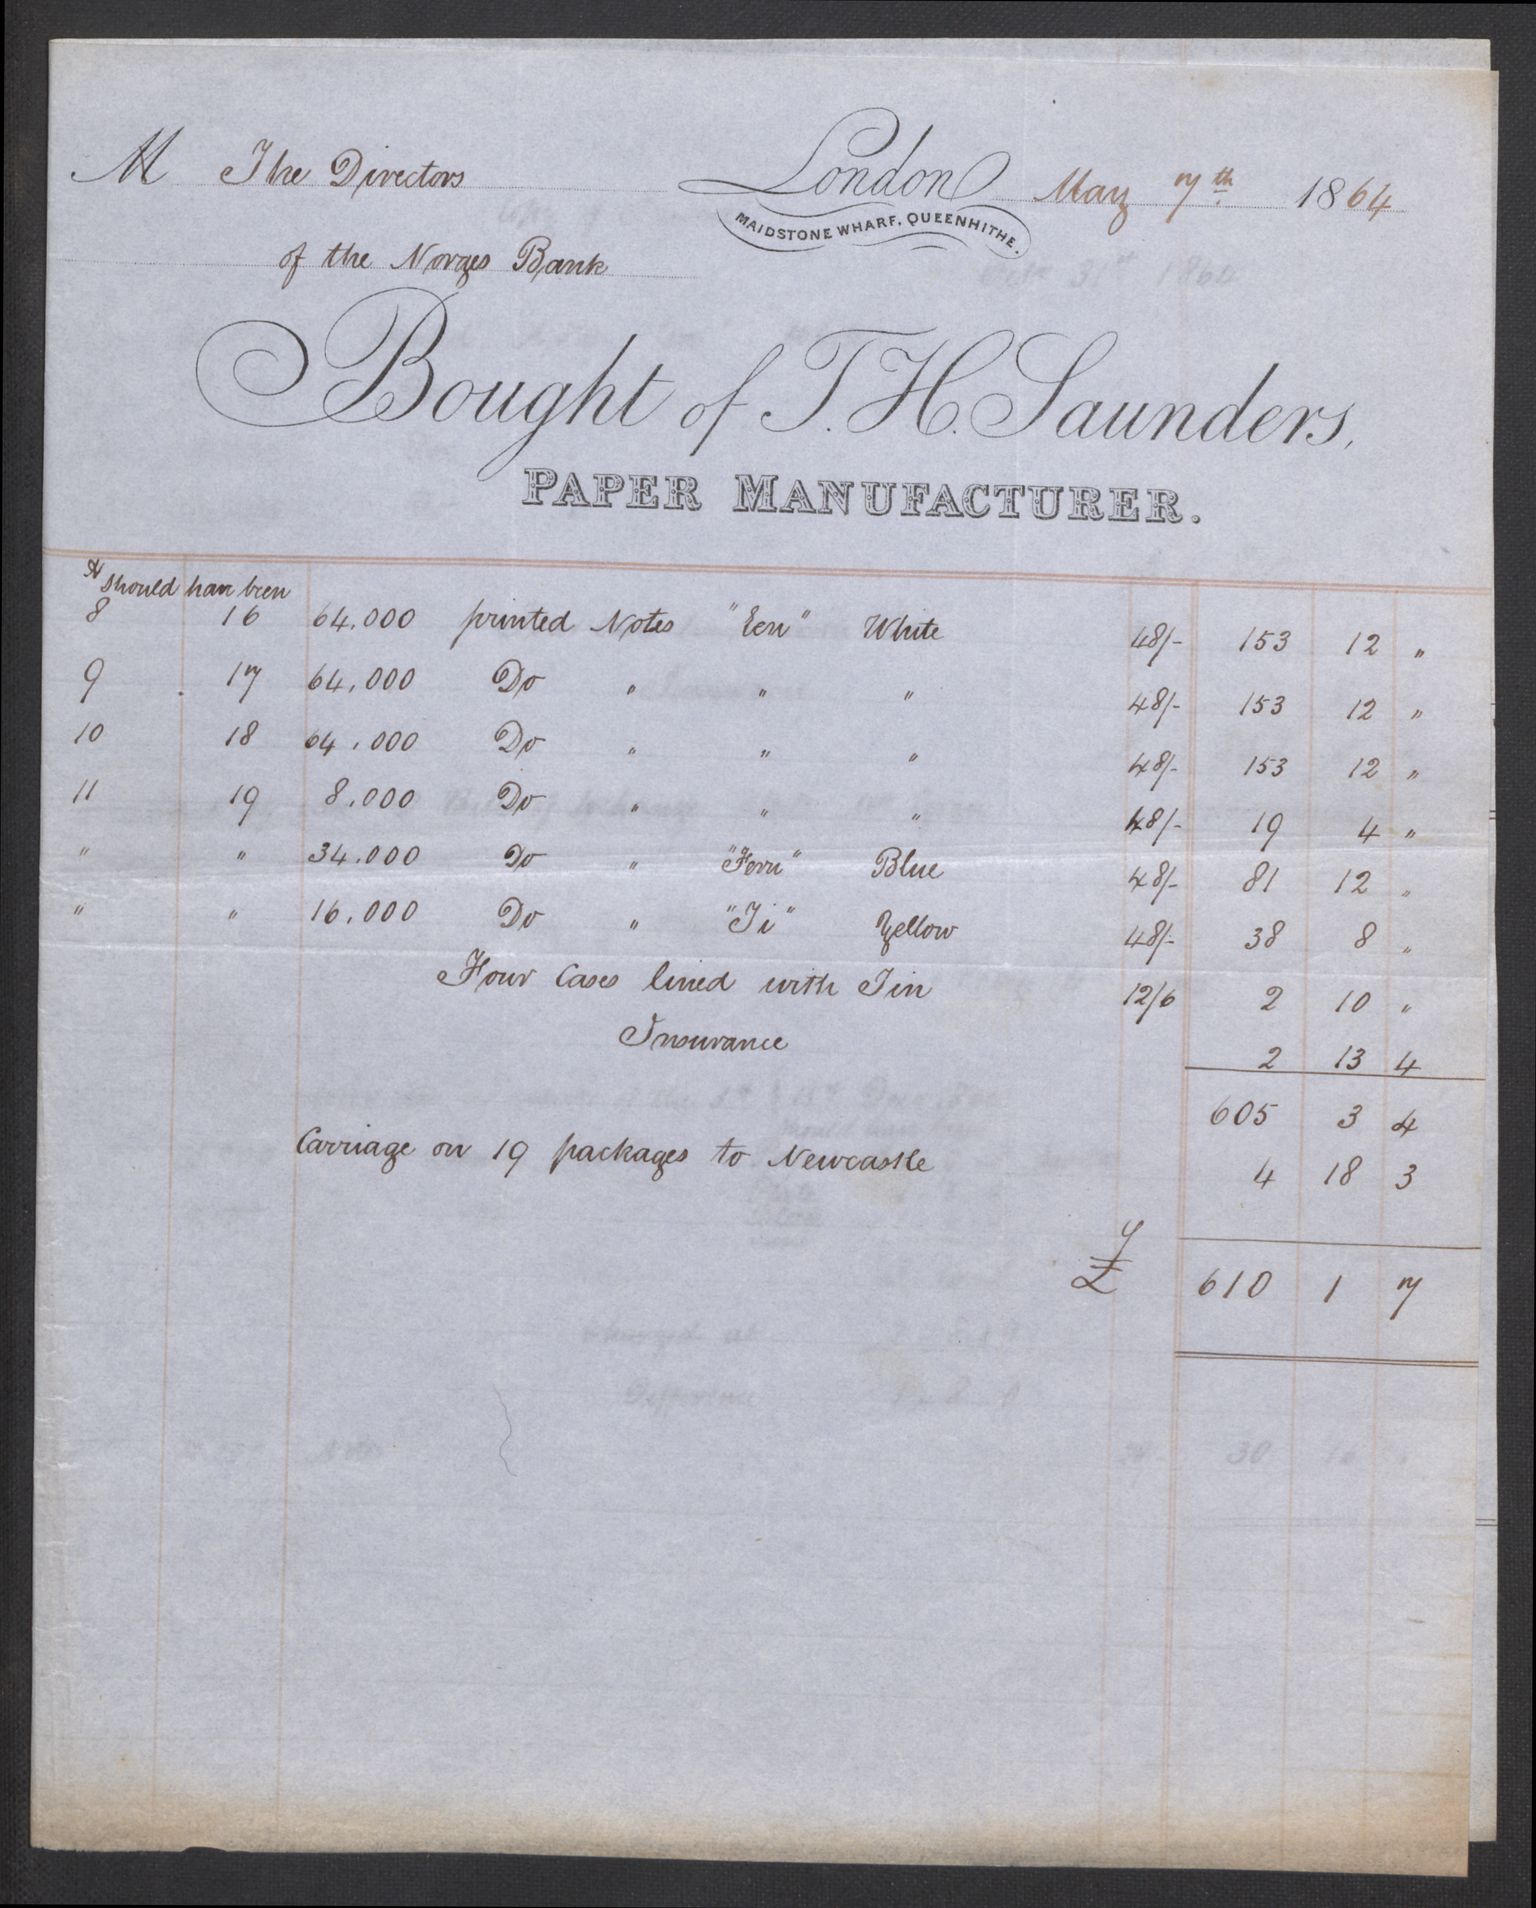 M The Directors London May 7th 1864
MAIDSTONE WHARF, QUEENHITHE.
of the Norges Bank
Bought of T. H. Saunders,
PAPER MANUFACTURER.
should have been
8 16 64.000 printed Notes "Een" White 48/- 153 12 "
9 17 64.000 Do " " " 48/- 153 12 "
10 18 64.000 Do " " " 48/- 153 12 "
11 19 8.000 Do " " " 48/- 19 4 "
" " 34.000 Do " "Fem" Blue 48/- 81 12 "
" " 16.000 Do " "Ti" Yellow 48/- 38 8 "
Four Cases lined with Tin 12/6 2 10 "
Insurance 2 13 4
605 3 4
Carriage on 19 packages to Newcastle 4 18 3
£ 610 1 7